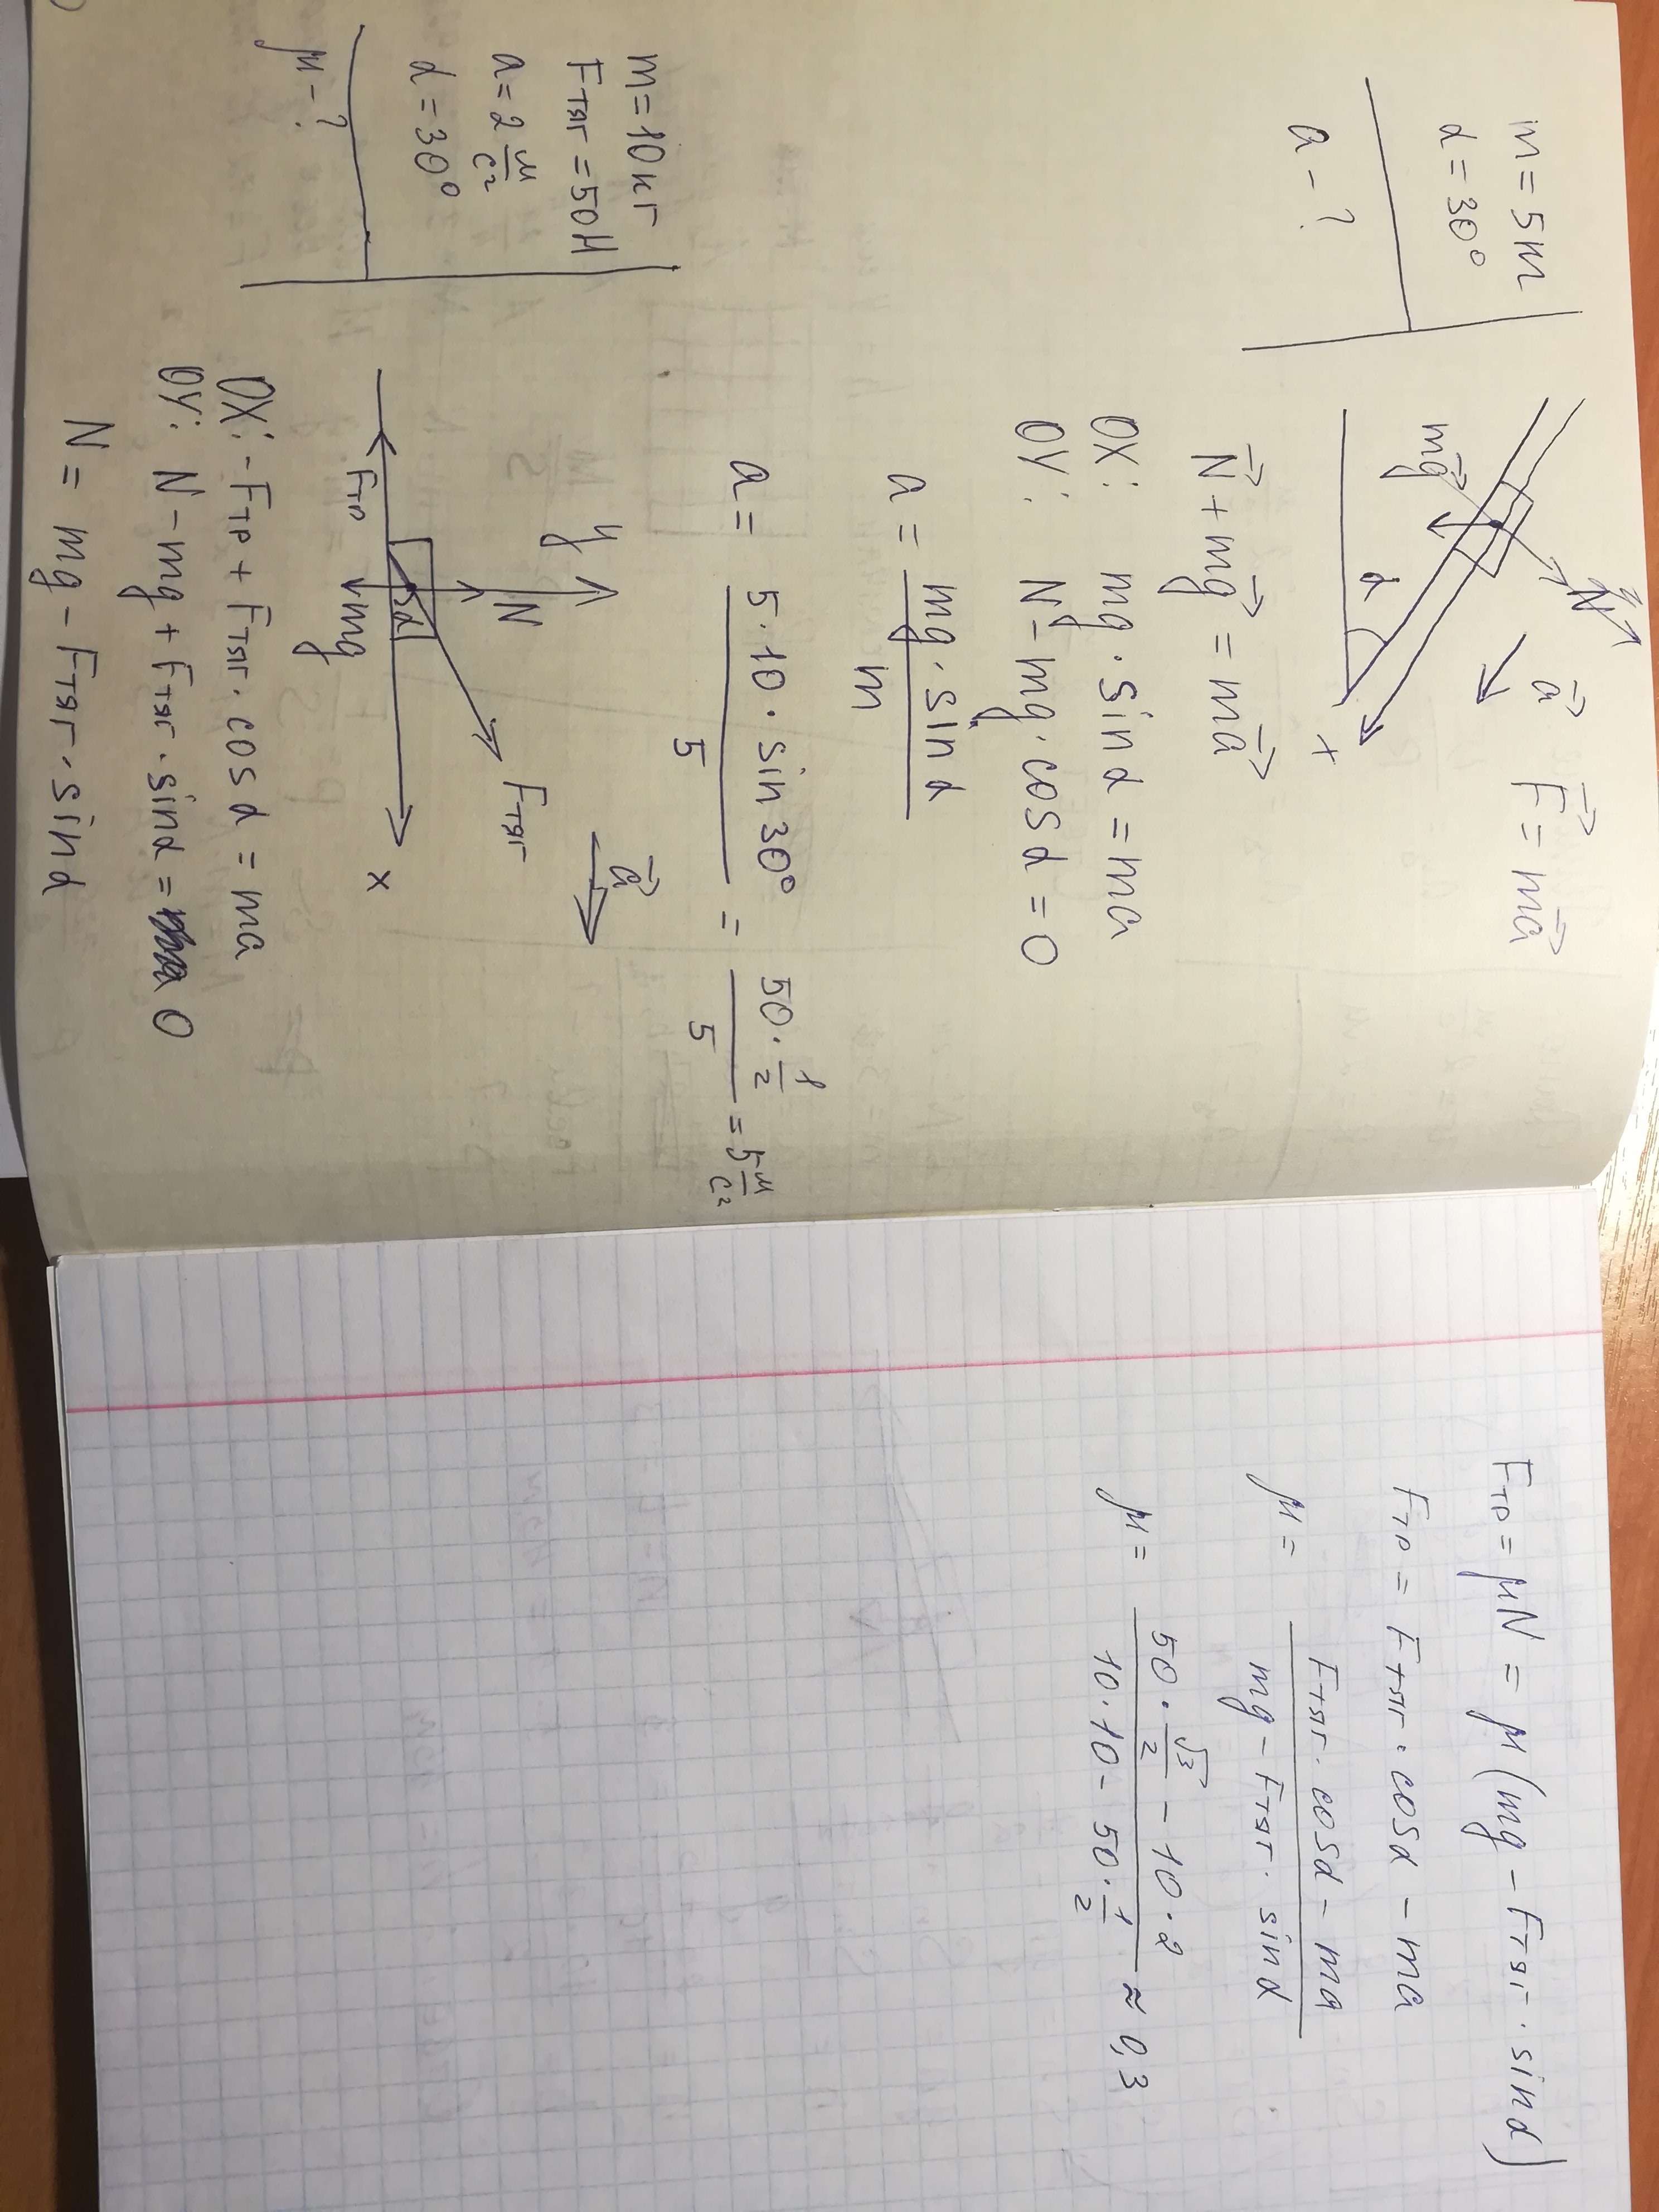 m = 5 m
α = 30°
a - ?
N⃗
a⃗
F⃗ = ma⃗
mg⃗
α
x
N⃗ + mg⃗ = ma⃗
OX: mg · sin α = ma
OY: N - mg · cos α = 0
a = mg · sin α / m
a = 5 · 10 · sin 30° / 5 = 50 · 1/2 / 5 = 5 м/с²
m = 10 кг
Fтяг = 50 Н
a = 2 м/с²
α = 30°
μ - ?
y
N
a⃗
Fтяг
α
Fтр
mg
x
OX: - Fтр + Fтяг · cos α = ma
OY: N - mg + Fтяг · sin α = 0
N = mg - Fтяг · sin α
Fтр = μN = μ (mg - Fтяг · sin α)
Fтр = Fтяг · cos α - ma
μ = Fтяг · cos α - ma / mg - Fтяг · sin α
μ = 50 · √3/2 - 10 · 2 / 10 · 10 - 50 · 1/2 ≈ 0,3